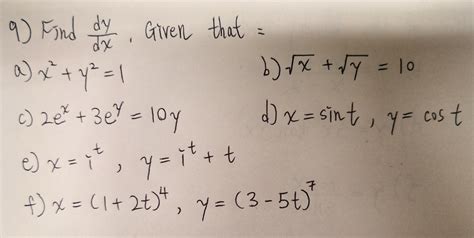 9) Find dy/dx, Given that :
a) x² + y² = 1 b) √x + √y = 10
c) 2eˣ + 3eʸ = 10y d) x = sin t, y = cos t
e) x = iᵗ, y = iᵗ + t
f) x = (1 + 2t)⁴, y = (3 - 5t)⁷